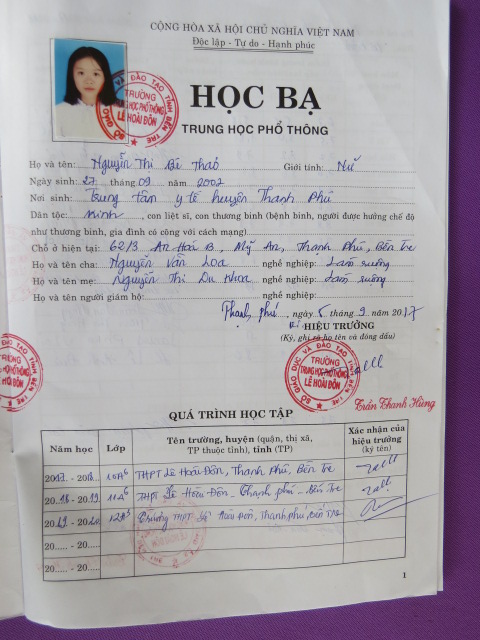 CỘNG HÒA XÃ HỘI CHỦ NGHĨA VIỆT NAM
Độc lập - Tự do - Hạnh phúc
HỌC BẠ
TRUNG HỌC PHỔ THÔNG
SỞ GIÁO DỤC VÀ ĐÀO TẠO TỈNH BẾN TRE
TRƯỜNG
TRUNG HỌC PHỔ THÔNG
LÊ HOÀI ĐÔN
Họ và tên: Nguyễn Thị Bé Thảo Giới tính: Nữ
Ngày sinh: 27 tháng 09 năm 2002
Nơi sinh: Trung tâm y tế huyện Thạnh Phú
Dân tộc: kinh, con liệt sĩ, con thương binh (bệnh binh, người được hưởng chế độ
như thương binh, gia đình có công với cách mạng):
Chỗ ở hiện tại: 62/3 An Hoà B, Mỹ An, Thạnh Phú, Bến Tre
Họ và tên cha: Nguyễn Văn Loa nghề nghiệp: Làm ruộng
Họ và tên mẹ: Nguyễn Thị nghề nghiệp: Làm ruộng
Họ và tên người giám hộ: nghề nghiệp:
Thạnh phú, ngày 5 tháng 9 năm 2017
HIỆU TRƯỞNG
(Ký, ghi rõ họ tên và đóng dấu)
TRƯỜNG
TRUNG HỌC PHỔ THÔNG
LÊ HOÀI ĐÔN
Trần Thanh Hùng
QUÁ TRÌNH HỌC TẬP
Năm học Lớp Tên trường, huyện (quận, thị xã, TP thuộc tỉnh), tỉnh (TP) Xác nhận của hiệu trưởng (ký tên)
2017 - 2018 10A6 THPT Lê Hoài Đôn, Thạnh Phú, Bến Tre
2018 - 2019 11A6 THPT Lê Hoài Đôn - Thạnh phú - Bến Tre
2019 - 2020 12A3 Trường THPT Lê Hoài Đôn, Thạnh phú, Bến Tre
20..... - 20.....
20..... - 20.....
1